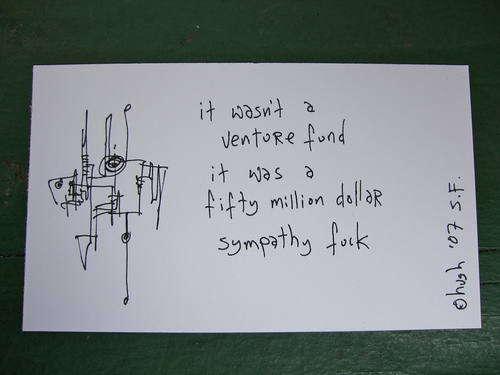 it wasn't a
venture fund
it was a
fifty million dollar
sympathy fuck
©hugh '07 S.F.